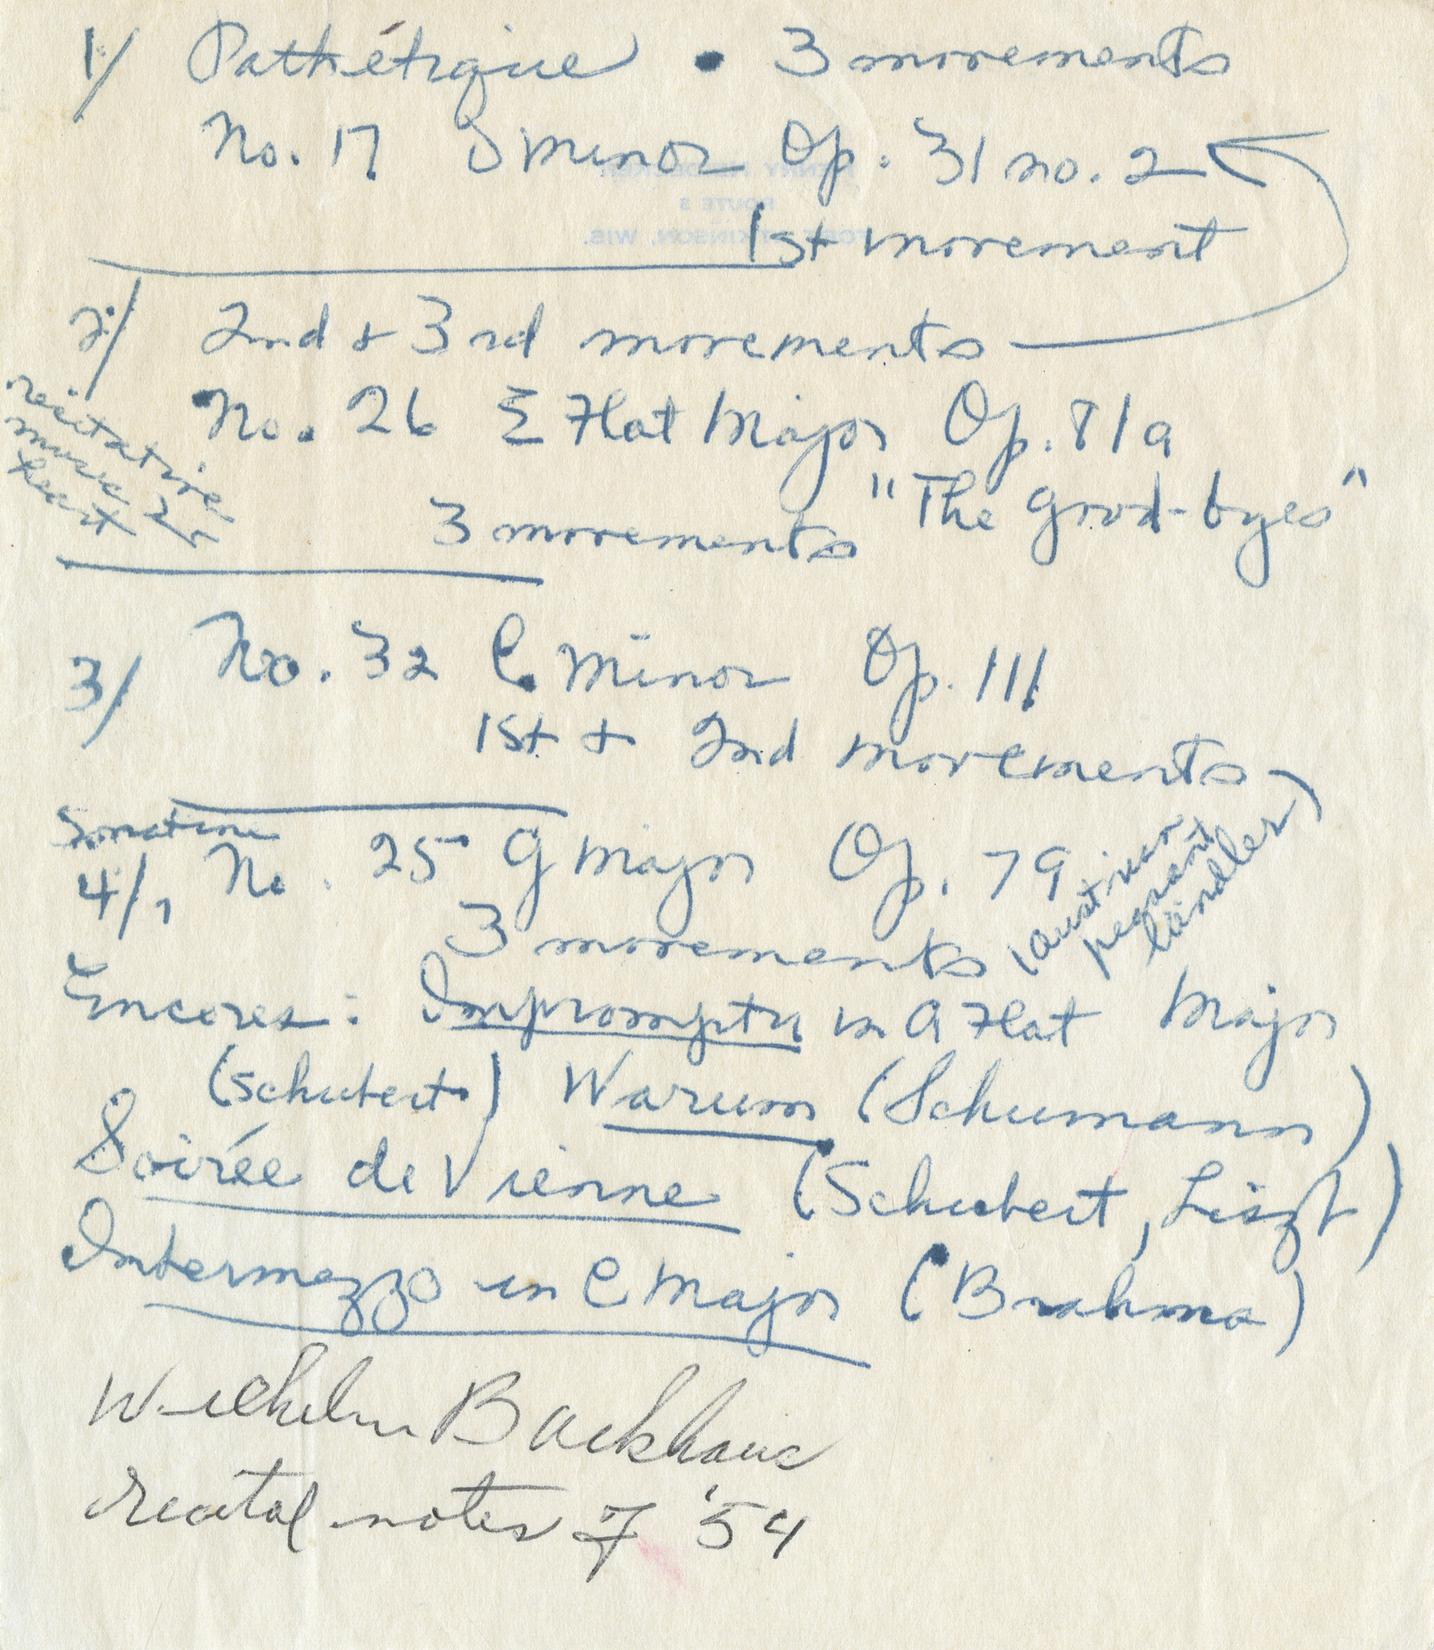 1/ Pathétique • 3 movements
No. 17 D minor Op. 31 no. 2
1st movement
2/ 2nd + 3rd movements
No. 26 E Flat Major Op. 81a
"The good-byes"
3 movements
recitative
music
heart
3/ No. 32 C Minor Op. 111
1st + 2nd movements
Sonatine
4/ No. 25 G major Op. 79
3 movements (austrian
peasant
ländler)
Encores: Impromptu in A Flat Major
(Schubert) Warum (Schumann)
Soirée de Vienne (Schubert, Liszt)
Intermezzo in C Major (Brahms)
Wilhelm Backhaus
recital notes F '54
ROUTE 3
FORT ATKINSON, WIS.